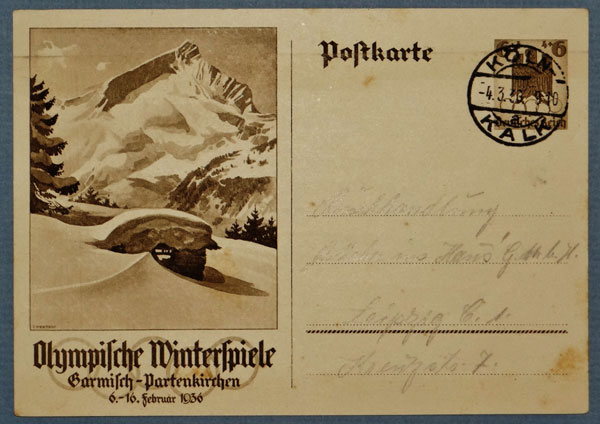 Postkarte
4+6
KÖLN-
-4.3.36. 9-10
a
KALK
Deutsches Reich
Olympische Winterspiele
Garmisch-Partenkirchen
6.-16. Februar 1936
Kunsthandlung
ins Haus G.m.b.H.
Leipzig C.1.
Kreuzstr. 7.